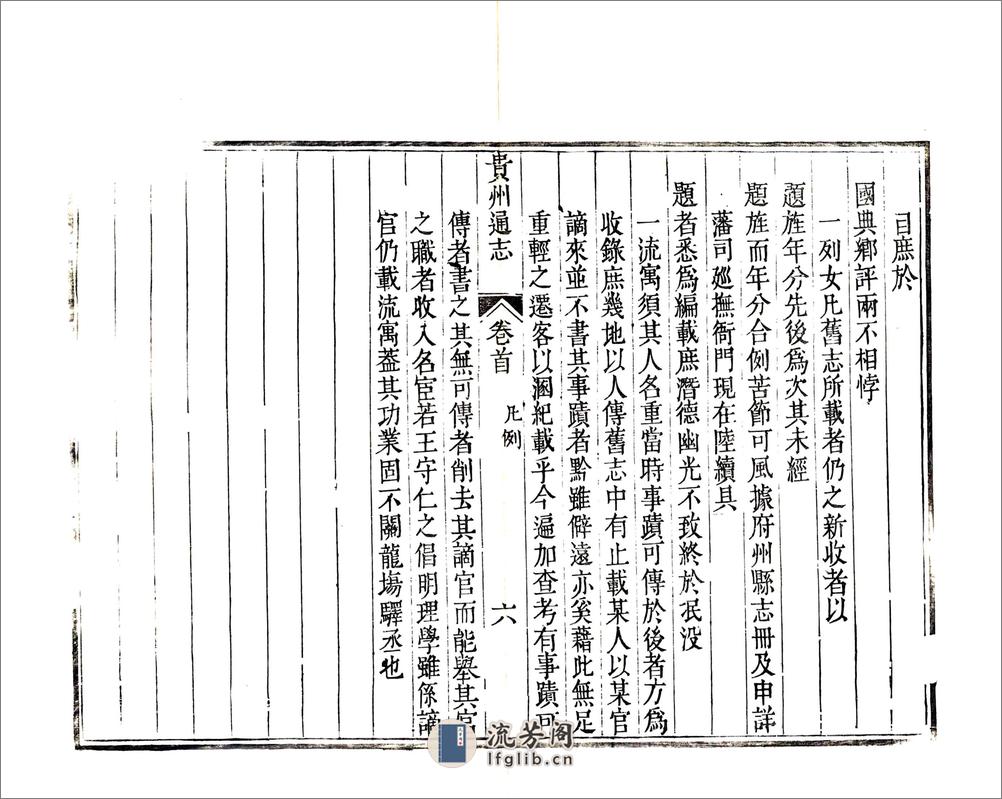 目庶於
國典鄉評兩不相悖
一列女凡舊志所載者仍之新收者以
題旌年分先後爲次其未經
題旌而年分合例苦節可風據府州縣志冊及申詳
藩司廵撫衙門現在陸續具
題者悉爲編載庶潛德幽光不致終於泯没
一流寓須其人名重當時事蹟可傳於後者方爲
收錄庶幾地以人傳舊志中有止載某人以某官
謫來並不書其事蹟者黔雖僻遠亦奚藉此無足
重輕之遷客以溷紀載乎今遍加查考有事蹟可
貴州通志
卷首
凡例
六
傳者書之其無可傳者削去其謫官而能舉其官
之職者收入名宦若王守仁之倡明理學雖係謫
官仍載流寓蓋其功業固不關龍場驛丞也
流芳阁
lfglib.cn